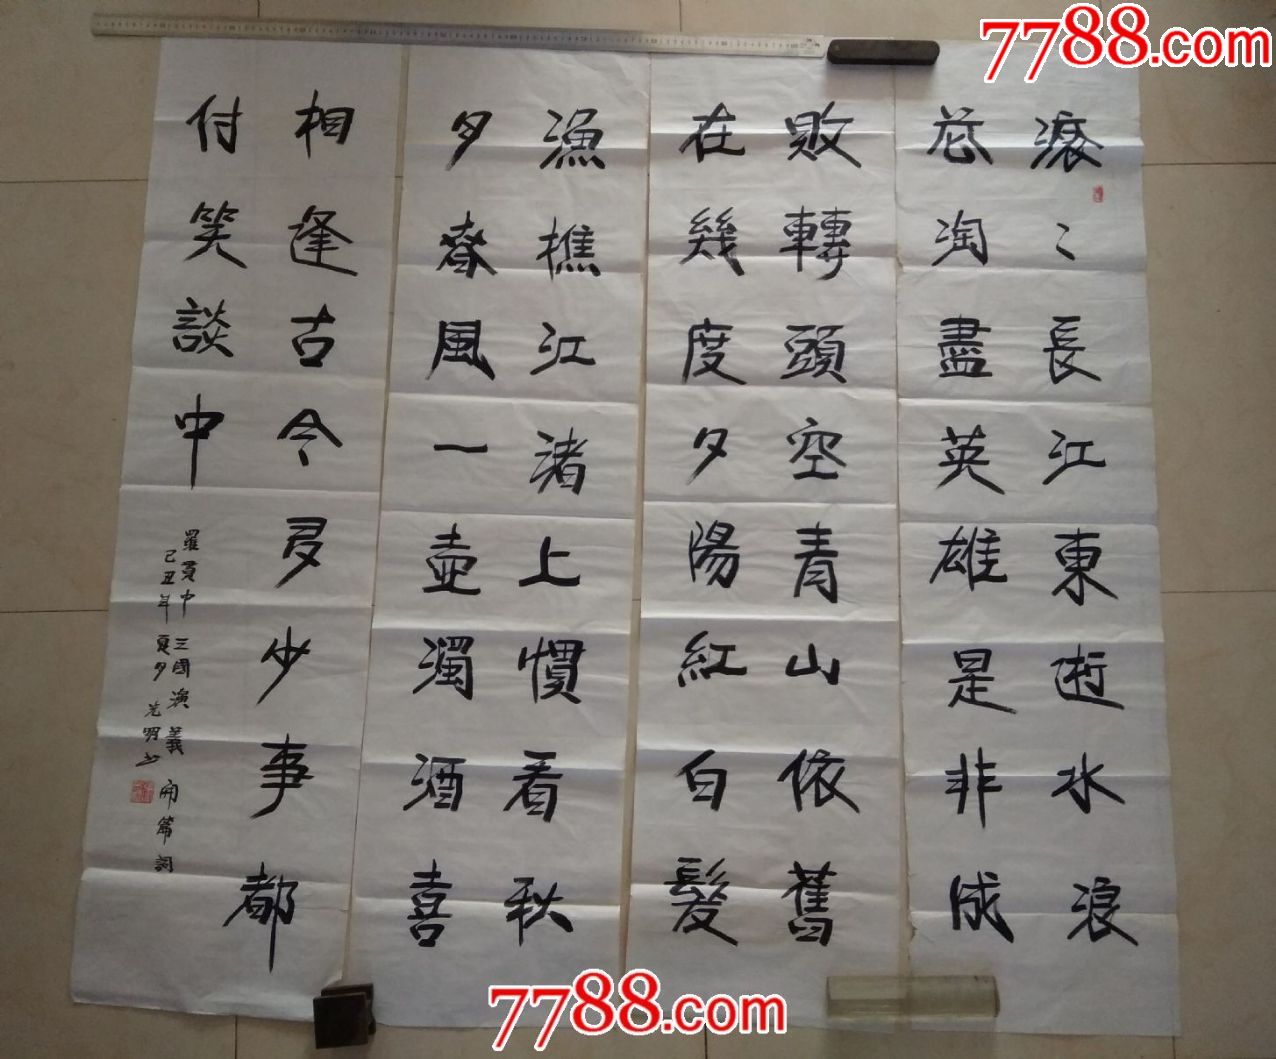 7788.com
滾〻長江東逝水浪
花淘盡英雄是非成
敗轉頭空青山依舊
在幾度夕陽紅白髮
漁樵江渚上慣看秋
月春風一壺濁酒喜
相逢古今多少事都
付笑談中
羅貫中三國演義開篇詞
己丑年夏月光明书
7788.com